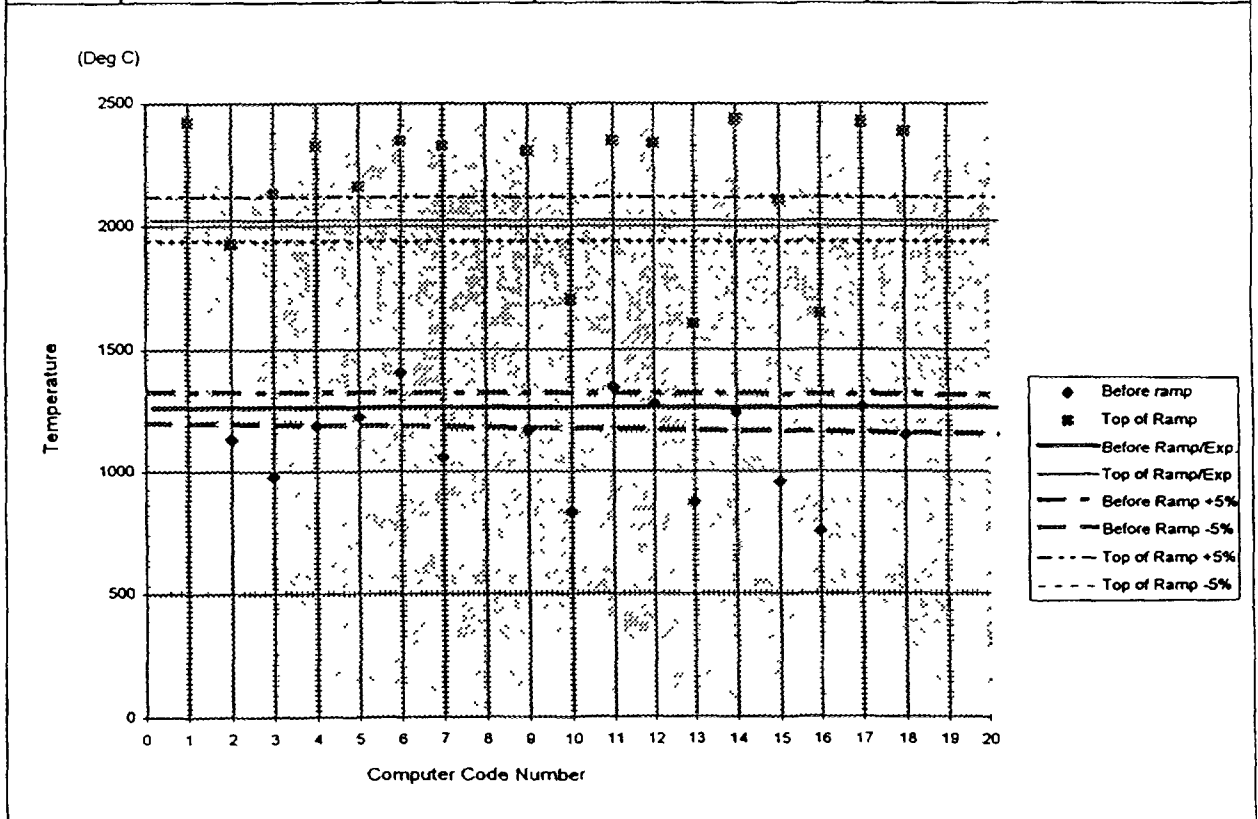 (Deg C)
2500
2000
1500
1000
500
0
Temperature
0 1 2 3 4 5 6 7 8 9 10 11 12 13 14 15 16 17 18 19 20
Computer Code Number
Before ramp
Top of Ramp
Before Ramp/Exp.
Top of Ramp/Exp
Before Ramp +5%
Before Ramp -5%
Top of Ramp +5%
Top of Ramp -5%